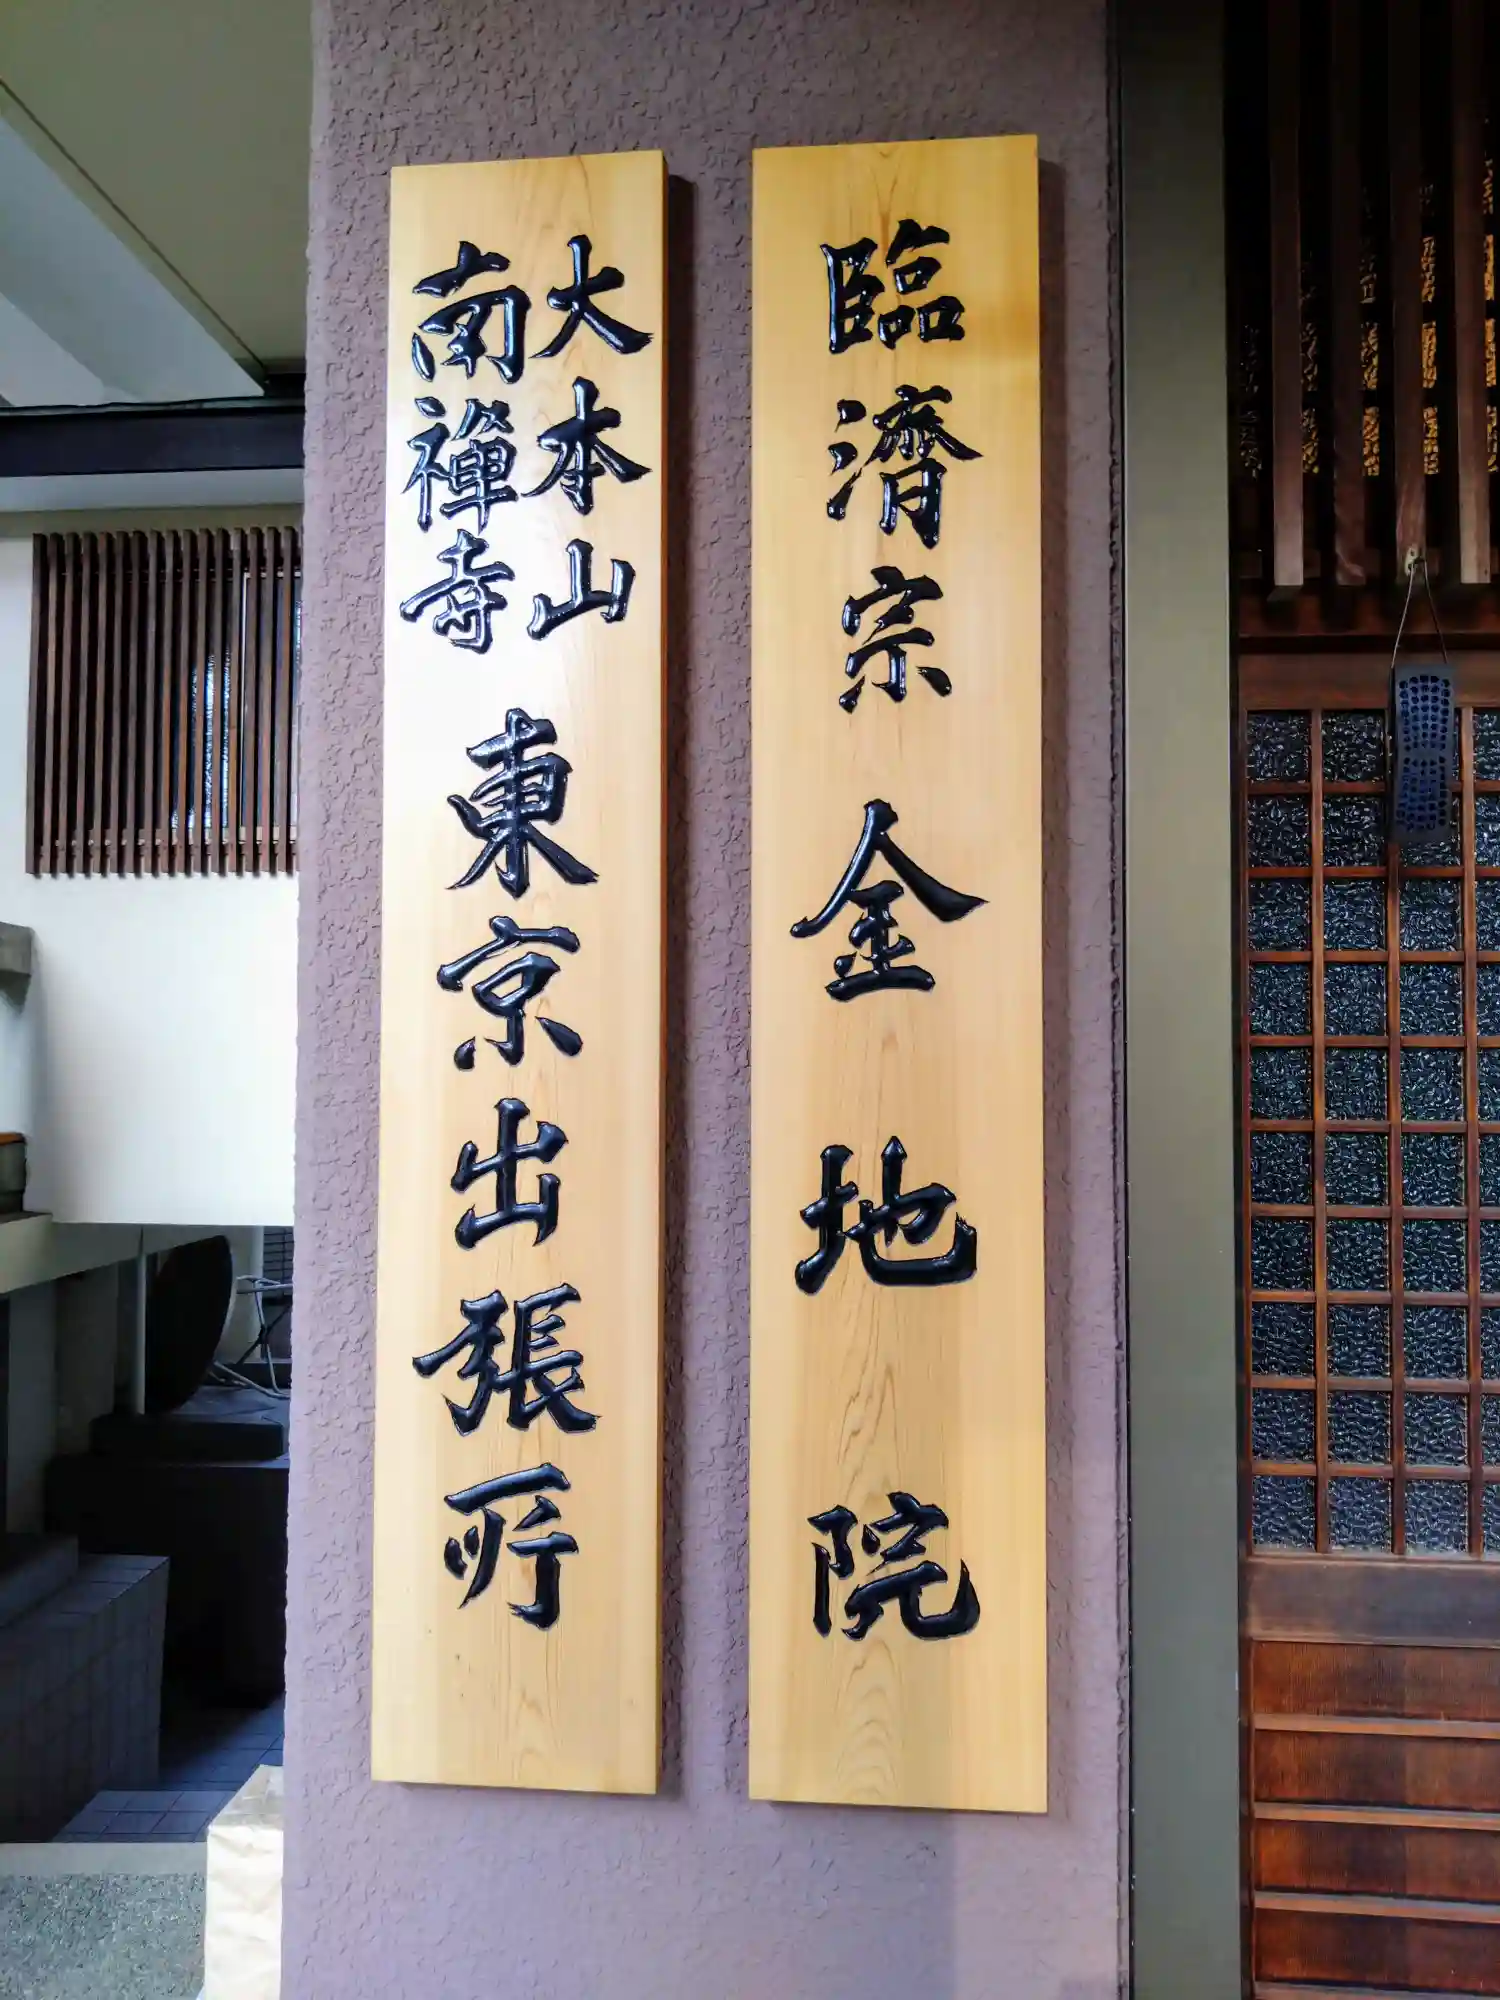 臨濟宗金地院
大本山
南禪寺
東京出張所